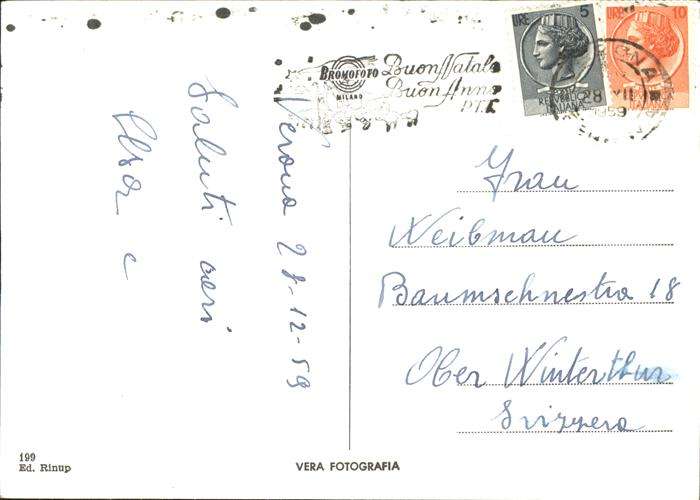 BROMOFOTO
MILANO
Buon Natale
Buon Anno
P.T.T.
LIRE 5
REPUBBLICA
ITALIANA
LIRE 10
28
1959
Verona 28-12-59
Saluti cari
Elsa e
Frau
Weibmau
Baumschnestra 18
Ober Winterthur
Svizzera
199
Ed. Rinup
VERA FOTOGRAFIA